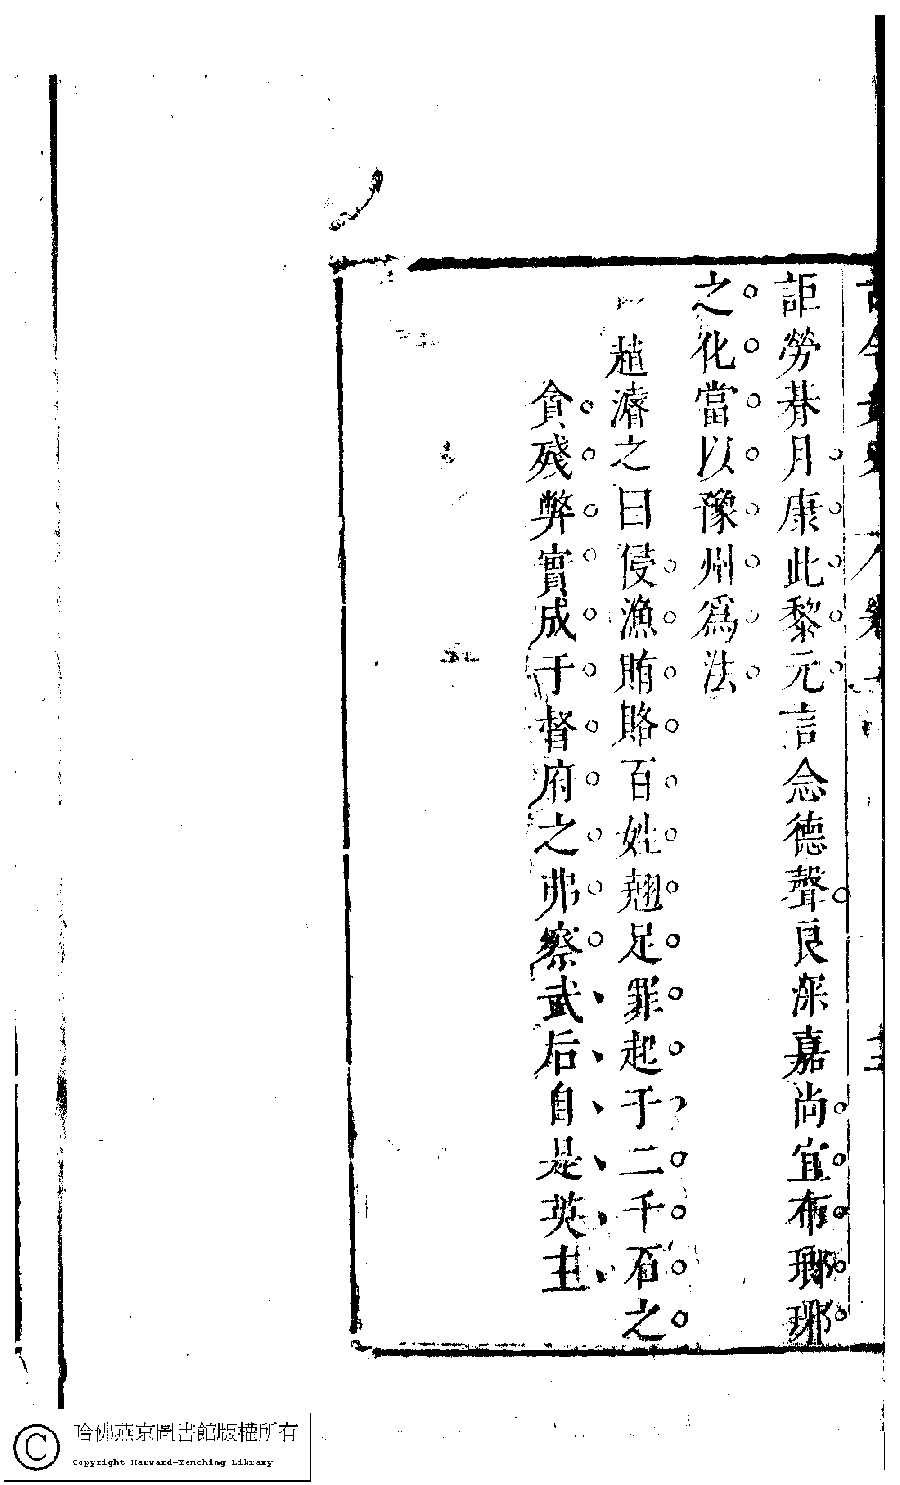 詎勞朞月康此黎元言念德聲良深嘉尚宜布瑯琊
之化當以豫州爲法
趙濬之曰侵漁賄賂百姓翹足罪起于二千石之
貪殘弊實成于督府之弗察武后自是英主
哈佛燕京圖書館版權所有
Copyright Harvard-Yenching Library